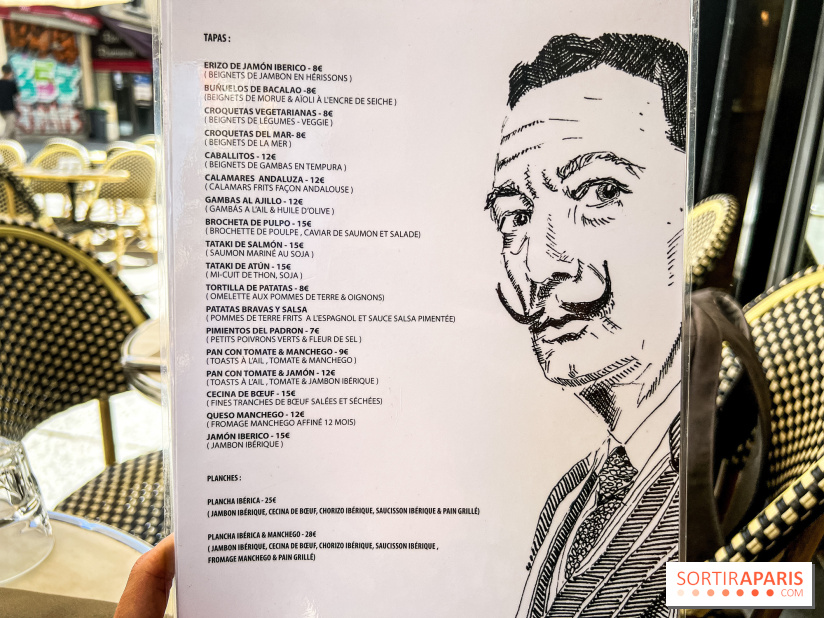 TAPAS :
ERIZO DE JAMÓN IBERICO - 8€
( BEIGNETS DE JAMBON EN HÉRISSONS )
BUÑUELOS DE BACALAO -8€
(BEIGNETS DE MORUE & AÏOLI À L'ENCRE DE SEICHE )
CROQUETAS VEGETARIANAS - 8€
( BEIGNETS DE LÉGUMES - VEGGIE )
CROQUETAS DEL MAR- 8€
( BEIGNETS DE LA MER )
CABALLITOS - 12€
( BEIGNETS DE GAMBAS EN TEMPURA )
CALAMARES ANDALUZA - 12€
( CALAMARS FRITS FAÇON ANDALOUSE )
GAMBAS AL AJILLO - 12€
( GAMBÁS A L'AIL & HUILE D'OLIVE )
BROCHETA DE PULPO - 15€
( BROCHETTE DE POULPE , CAVIAR DE SAUMON ET SALADE)
TATAKI DE SALMÓN - 15€
( SAUMON MARINÉ AU SOJA )
TATAKI DE ATÚN - 15€
( MI-CUIT DE THON, SOJA )
TORTILLA DE PATATAS - 8€
( OMELETTE AUX POMMES DE TERRE & OIGNONS)
PATATAS BRAVAS Y SALSA
( POMMES DE TERRE FRITS A L'ESPAGNOL ET SAUCE SALSA PIMENTÉE)
PIMIENTOS DEL PADRON - 7€
( PETITS POIVRONS VERTS & FLEUR DE SEL )
PAN CON TOMATE & MANCHEGO - 9€
( TOASTS À L'AIL , TOMATE & MANCHEGO )
PAN CON TOMATE & JAMÓN - 12€
( TOASTS À L'AIL , TOMATE & JAMBON IBÉRIQUE )
CECINA DE BŒUF - 15€
( FINES TRANCHES DE BŒUF SALÉES ET SÉCHÉES)
QUESO MANCHEGO - 12€
( FROMAGE MANCHEGO AFFINÉ 12 MOIS)
JAMÓN IBERICO - 15€
( JAMBON IBÉRIQUE )
PLANCHES :
PLANCHA IBÉRICA - 25€
( JAMBON IBÉRIQUE, CECINA DE BŒUF, CHORIZO IBÉRIQUE, SAUCISSON IBÉRIQUE & PAIN GRILLÉ)
PLANCHA IBÉRICA & MANCHEGO - 28€
( JAMBON IBÉRIQUE, CECINA DE BŒUF, CHORIZO IBÉRIQUE, SAUCISSON IBÉRIQUE ,
FROMAGE MANCHEGO & PAIN GRILLÉ)
SORTIRAPARIS
.COM